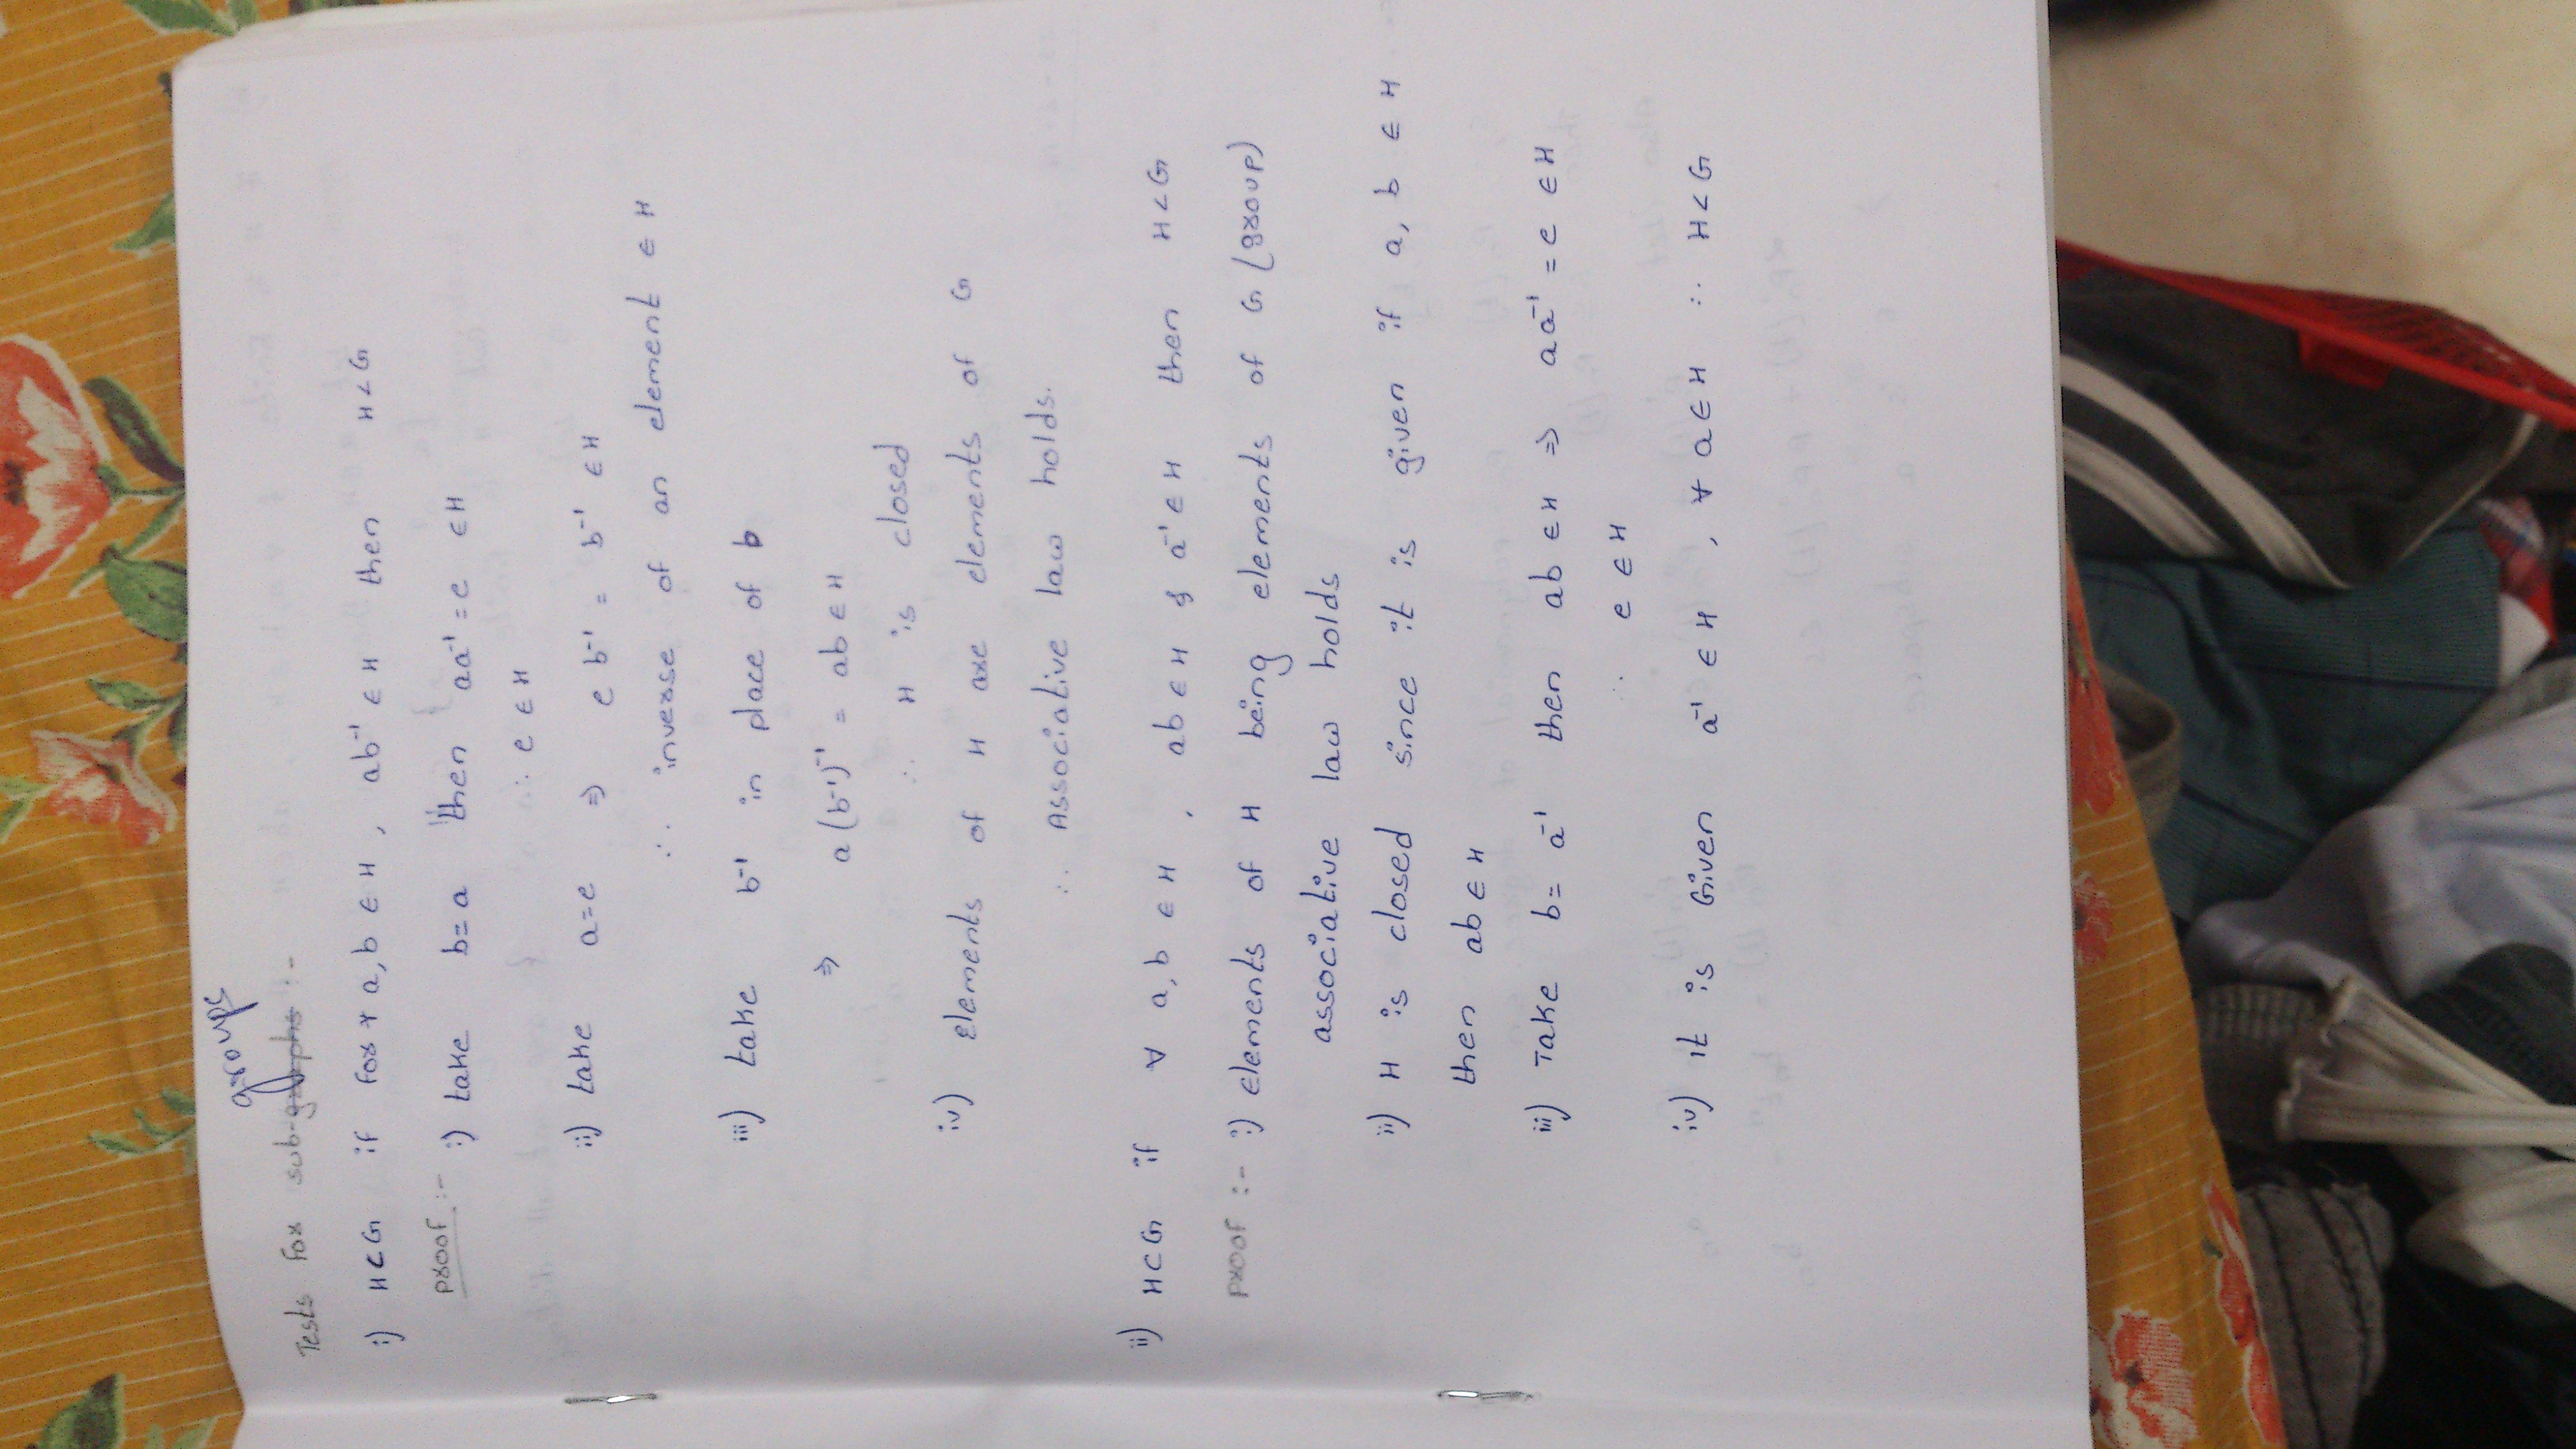 Tests for sub-graphs :-
groups
i) H⊂G if for ∀ a,b ∈ H , ab⁻¹ ∈ H then H<G
proof :- i) take b=a then aa⁻¹=e ∈H
∴ e ∈ H
ii) take a=e ⇒ e b⁻¹ = b⁻¹ ∈ H
∴ inverse of an element ∈ H
iii) take b⁻¹ in place of b
⇒ a(b⁻¹)⁻¹ = ab ∈ H
∴ H is closed
iv) elements of H are elements of G
∴ Associative law holds.
ii) H⊂G if ∀ a,b ∈ H , ab ∈ H & a⁻¹ ∈ H then H<G
proof :- i) elements of H being elements of G (group)
associative law holds
ii) H is closed since it is given if a, b ∈ H
then ab ∈ H
iii) Take b= a⁻¹ then ab ∈ H ⇒ aa⁻¹ = e ∈ H
∴ e ∈ H
iv) it is Given a⁻¹ ∈ H , ∀ a ∈ H ∴ H<G